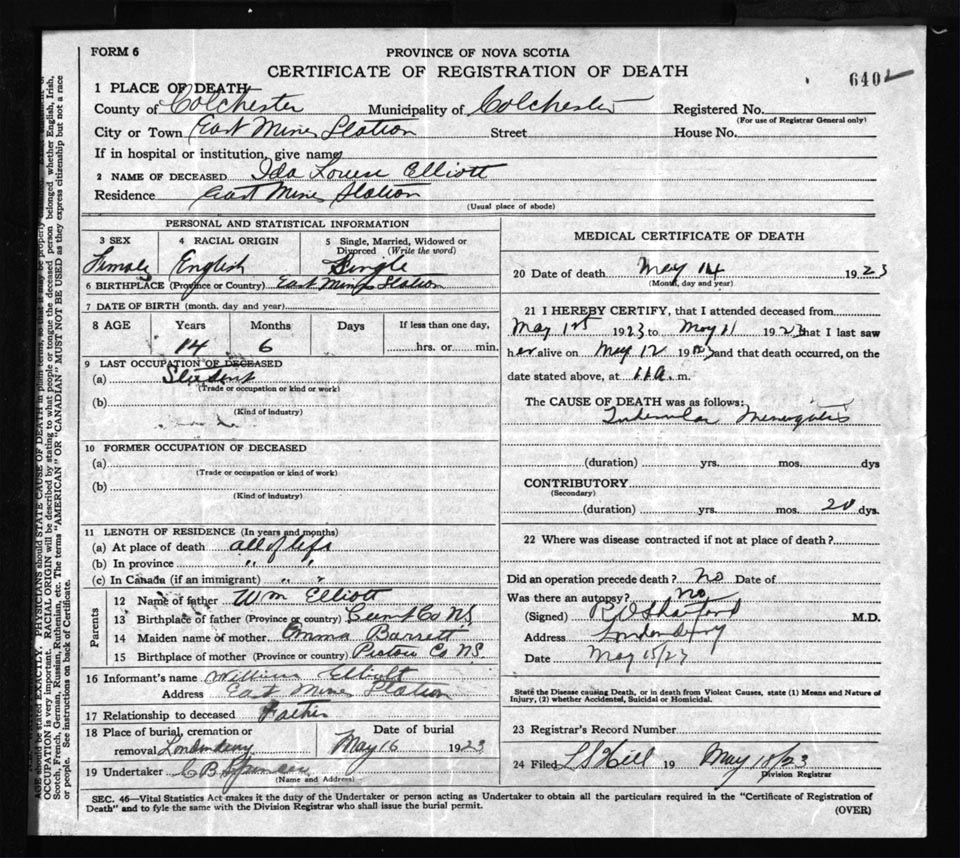 FORM 6
PROVINCE OF NOVA SCOTIA
CERTIFICATE OF REGISTRATION OF DEATH
640
1 PLACE OF DEATH
County of Colchester Municipality of Colchester Registered No.
(For use of Registrar General only)
City or Town East Mines Station Street House No.
If in hospital or institution, give name
2 NAME OF DECEASED Ida Louise Elliott
Residence East Mines Station
(Usual place of abode)
PERSONAL AND STATISTICAL INFORMATION
3 SEX 4 RACIAL ORIGIN 5 Single, Married, Widowed or Divorced (Write the word)
Female English Single
6 BIRTHPLACE (Province or Country) East Mines Station
7 DATE OF BIRTH (month, day and year)
8 AGE Years Months Days If less than one day,
14 6 hrs. or min.
9 LAST OCCUPATION OF DECEASED
(a) Student
(Trade or occupation or kind or work)
(b)
(Kind of industry)
10 FORMER OCCUPATION OF DECEASED
(a)
(Trade or occupation or kind of work)
(b)
(Kind of industry)
11 LENGTH OF RESIDENCE (In years and months)
(a) At place of death all of life
(b) In province " "
(c) In Canada (if an immigrant) " "
Parents
12 Name of father Wm Elliott
13 Birthplace of father (Province or country) Co NS
14 Maiden name of mother Emma Barrett
15 Birthplace of mother (Province or country) Pictou Co NS
16 Informant's name William Elliott
Address East Mines Station
17 Relationship to deceased Father
18 Place of burial, cremation or Date of burial
removal Londonderry May 16 1923
19 Undertaker C B Spencer
(Name and Address)
MEDICAL CERTIFICATE OF DEATH
20 Date of death May 14 1923
(Month, day and year)
21 I HEREBY CERTIFY, that I attended deceased from
May 1st 1923 to May 11 1923 that I last saw
her alive on May 12 1923 and that death occurred, on the
date stated above, at 11 a. m.
The CAUSE OF DEATH was as follows:
Tubercular Meningitis
(duration) yrs. mos. dys
CONTRIBUTORY
(Secondary)
(duration) yrs. mos. 20 dys.
22 Where was disease contracted if not at place of death?
Did an operation precede death? no Date of
Was there an autopsy? no
(Signed) M.D.
Address Londonderry
Date May 15/23
State the Disease causing Death, or in death from Violent Causes, state (1) Means and Nature of
Injury, (2) whether Accidental, Suicidal or Homicidal.
23 Registrar's Record Number
24 Filed L S Hill 19 May 18/23
Division Registrar
SEC. 46—Vital Statistics Act makes it the duty of the Undertaker or person acting as Undertaker to obtain all the particulars required in the "Certificate of Registration of
Death" and to fyle the same with the Division Registrar who shall issue the burial permit.
(OVER)
AGE should be stated EXACTLY. PHYSICIANS should STATE CAUSE OF DEATH in plain terms, so that it may be properly
OCCUPATION is very important. RACIAL ORIGIN will be described by stating to what people or tongue the deceased person belonged whether English, Irish,
Scotch, French, German, Russian, Ruthenian, etc. The terms "AMERICAN" OR "CANADIAN" MUST NOT BE USED as they express citizenship but not a race
or people. See instructions on back of Certificate.